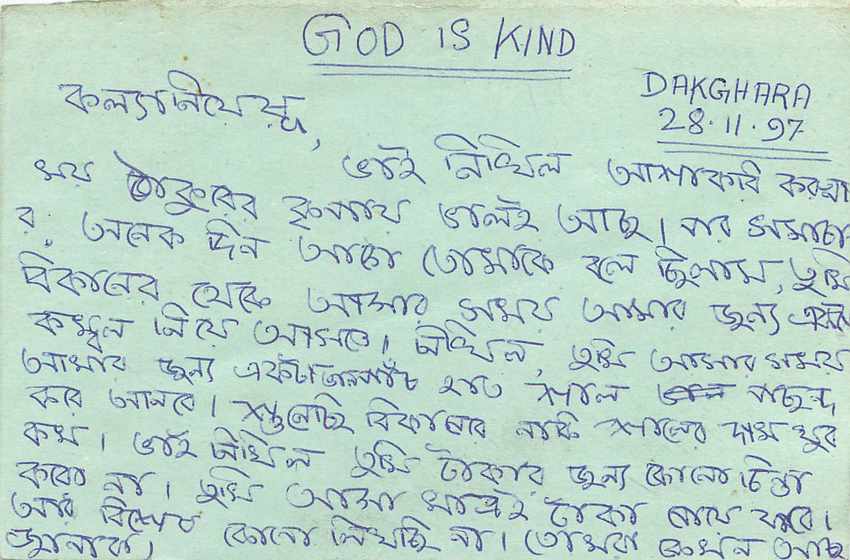 GOD IS KIND
DAKGHARA
28.11.97
কল্যানিয়েষু,
ভাই নিখিল আশাকরি করুনা
ময় ঠাকুরের কৃপায় ভালই আছ। পর সমাচা
র, অনেক দিন আগে তোমাকে বলে ছিলাম, তুমি
বিকানের থেকে আসার সময় আমার জন্য একটা
কম্বল নিয়ে আসবে। নিখিল, তুমি আসার সময়
আমার জন্য একটা হাত শাল পছন্দ
করে আনবে। শুনেছি বিকানের নাকি শালের দাম খুব
কম। ভাই নিখিল তুমি টাকার জন্য কোনো চিন্তা
করো না। তুমি আসা মাত্রই টাকা পেয়ে যাবে।
আর বিশেষ কোনো লিখছি না। তোমরা কেমন আছ
জানাবে।